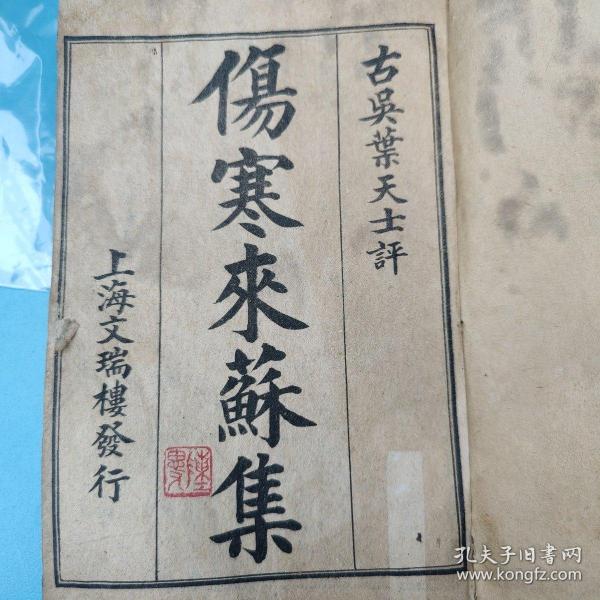 古吳葉天士評
傷寒來蘇集
上海文瑞樓發行
孔夫子旧書网
www.kongfz.com